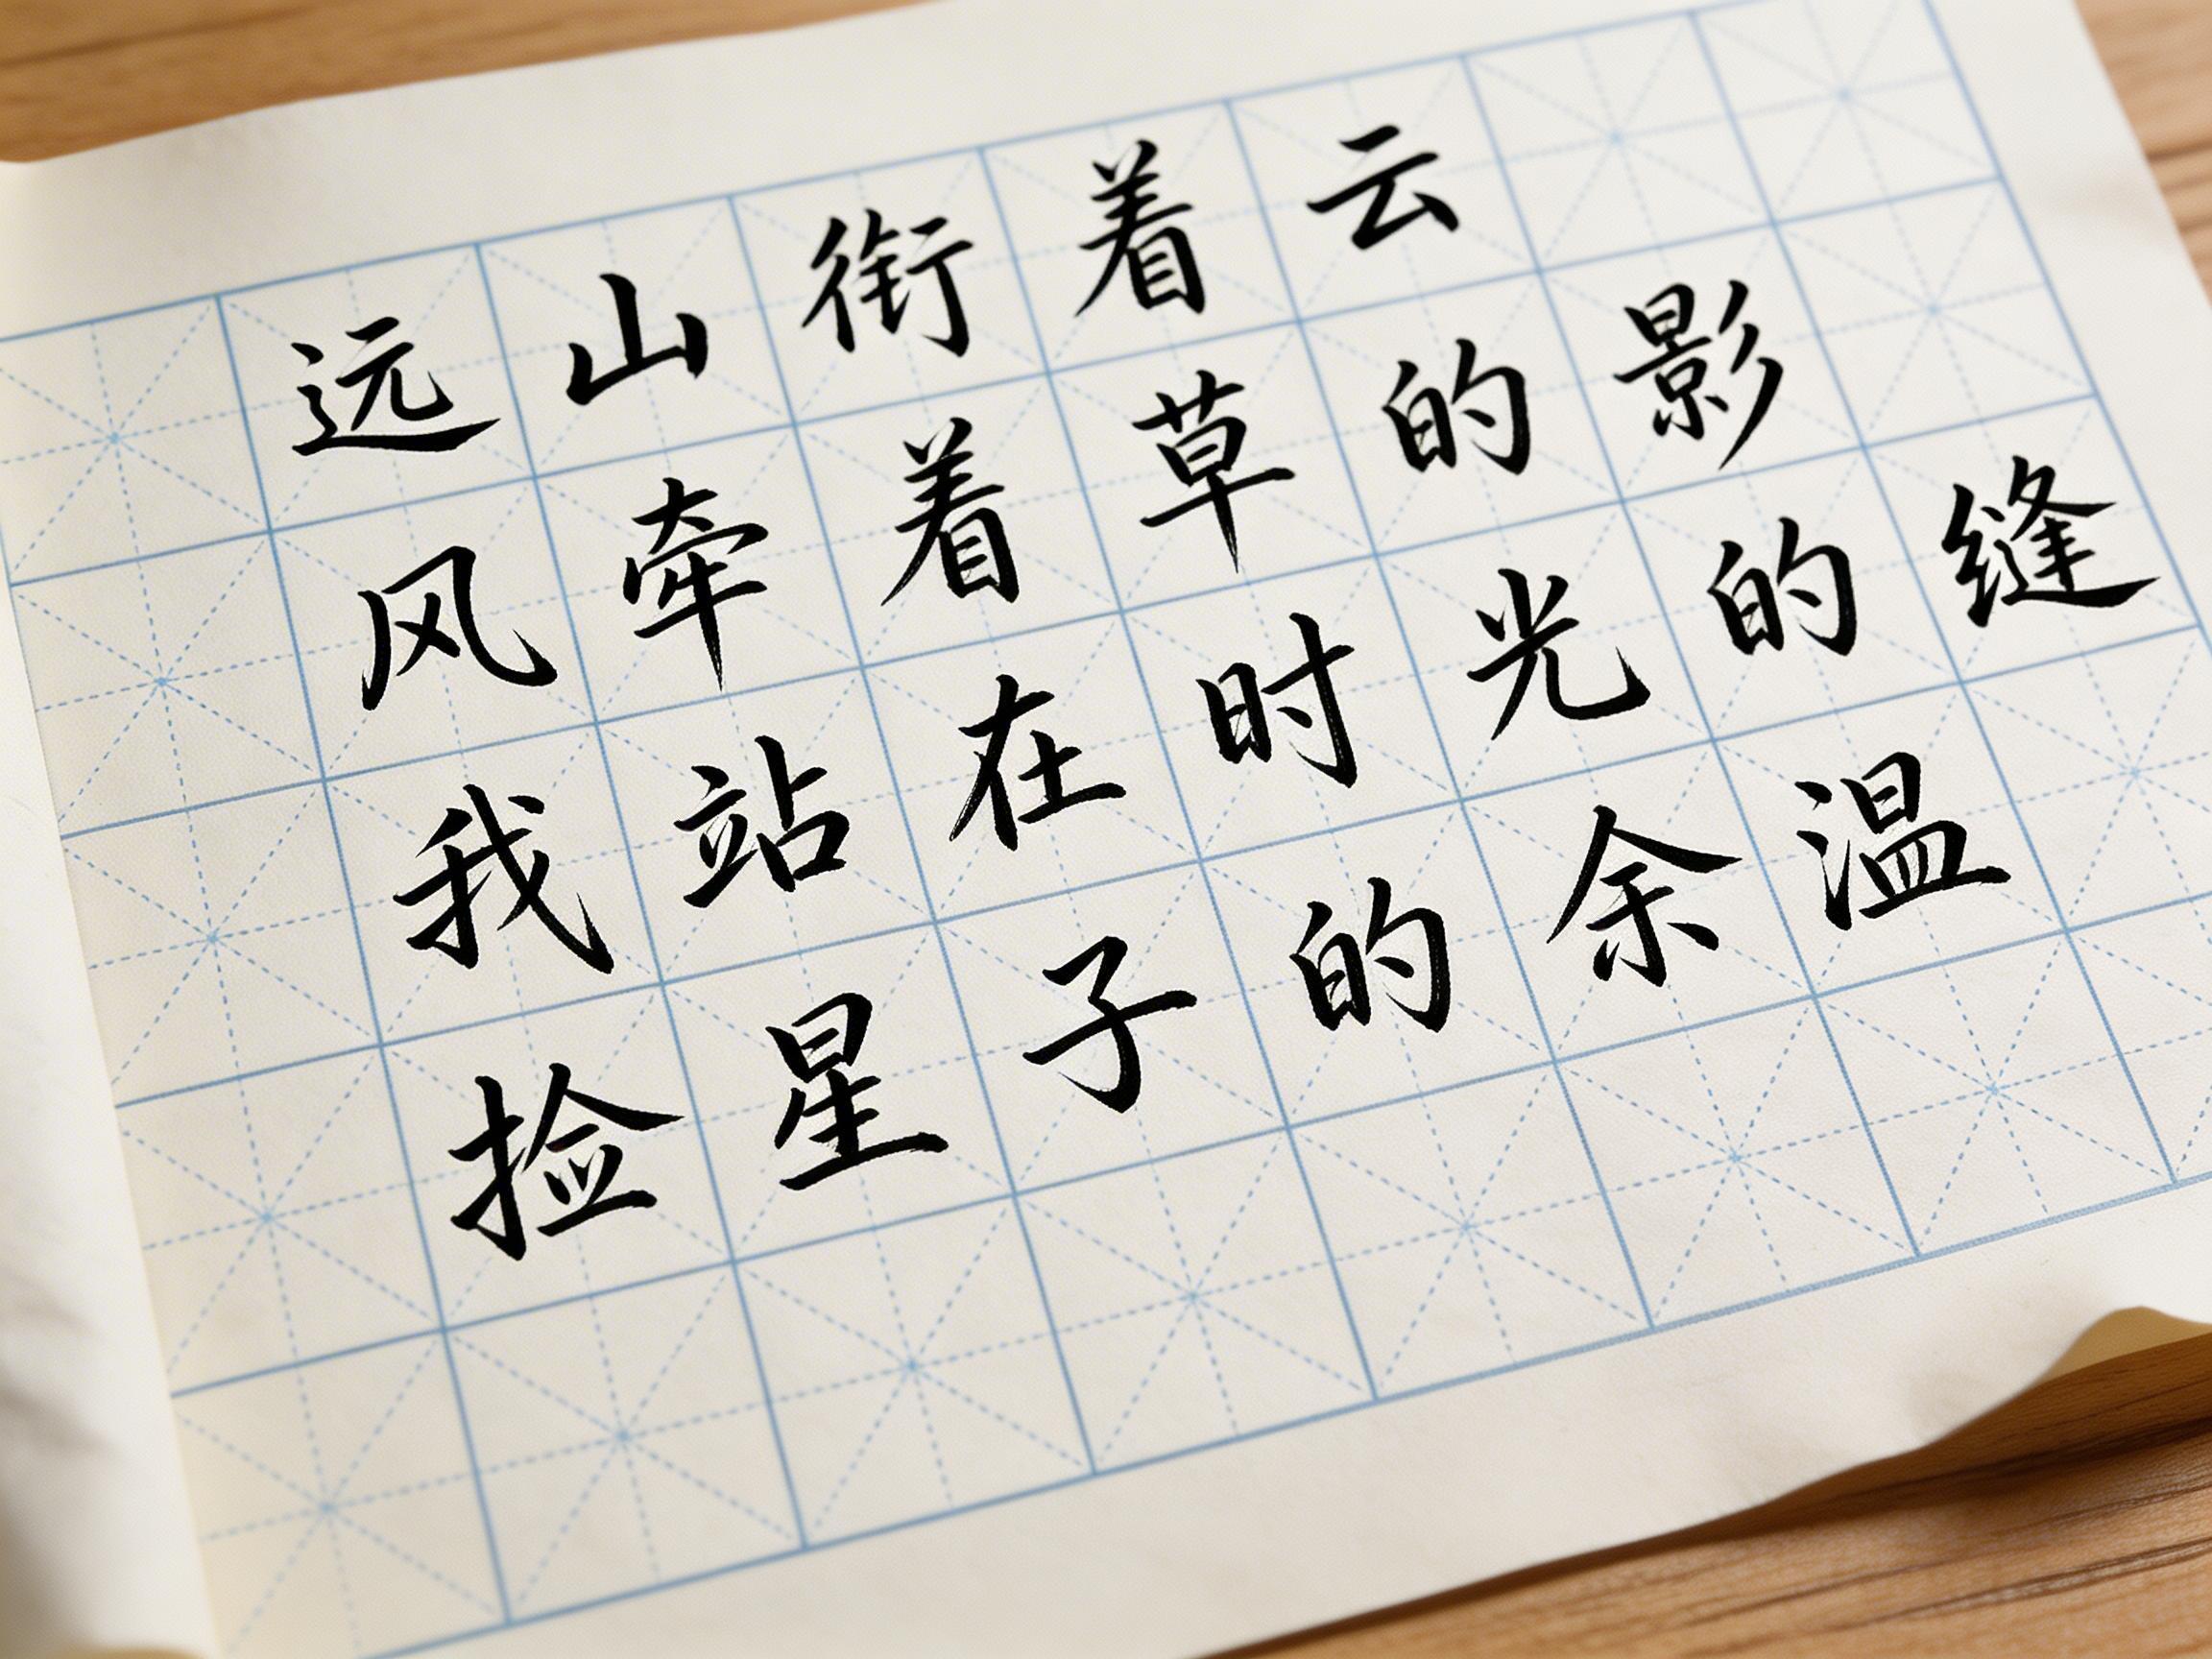 远山衔着云
风牵着草的影
我站在时光的缝
捡星子的余温